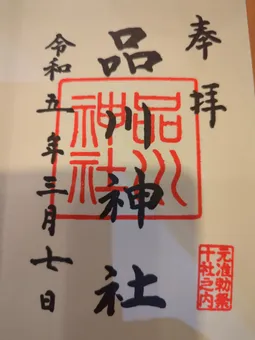 奉拝
品川神社
品川神社
元准勅祭
十社之内
令和五年三月七日